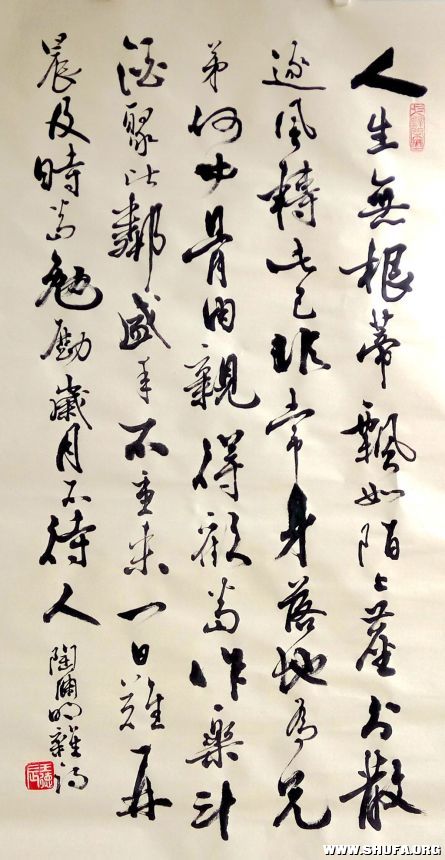 人生無根蒂飄如陌上塵分散
逐風轉此已非常身落地為兄
弟何必骨肉親得歡當作樂斗
酒聚比鄰盛年不重來一日難再
晨及時當勉勵歲月不待人
陶淵明雜詩
WWW.SHUFA.ORG